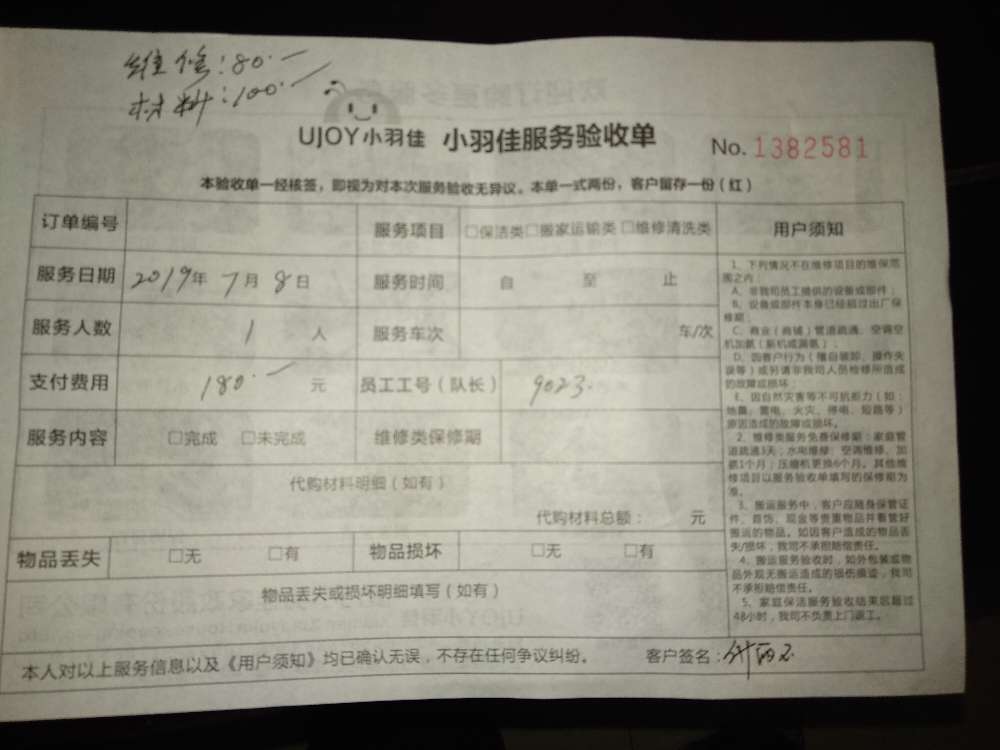 维修：80.—
材料：100.—
UJOY小羽佳 小羽佳服务验收单
No. 1382581
本验收单一经核签，即视为对本次服务验收无异议。本单一式两份，客户留存一份（红）
订单编号 服务项目 □保洁类 □搬家运输类 □维修清洗类 用户须知
服务日期 2019年 7月 8日 服务时间 自 至 止
服务人数 1 人 服务车次 车/次
支付费用 180.— 元 员工工号（队长） 9023.
服务内容 □完成 □未完成 维修类保修期
代购材料明细（如有）
代购材料总额： 元
物品丢失 □无 □有 物品损坏 □无 □有
物品丢失或损坏明细填写（如有）
1、下列情况不在维修项目的维保范
围之内：
A、非我司员工提供的设备或部件；
B、设备或部件本身已经超过出厂保
修期；
C、商业（商铺）管道疏通、空调空
机加氟（新机或漏氟）；
D、因客户行为（擅自装卸、操作失
误等）或另请非我司人员检修所造成
的故障或损坏；
E、因自然灾害等不可抗能力（如：
地震、雷电、火灾、停电、短路等）
原因造成的故障或损坏。
2、维修类服务免费保修期：家庭管
道疏通3天；水电维修、空调维修、加
氟1个月；压缩机更换6个月。其他维
修项目以服务验收单填写的保修期为
准。
3、搬运服务中，客户应随身保管证
件、首饰、现金等贵重物品并看管好
搬运的物品。如因客户造成的物品丢
失/损坏，我司不承担赔偿责任。
4、搬运服务验收时，如外包装或物
品外观无搬运造成的损伤痕迹，我司
不承担赔偿责任。
5、家庭保洁服务验收结束后超过
48小时，我司不负责上门返工。
本人对以上服务信息以及《用户须知》均已确认无误，不存在任何争议纠纷。 客户签名：